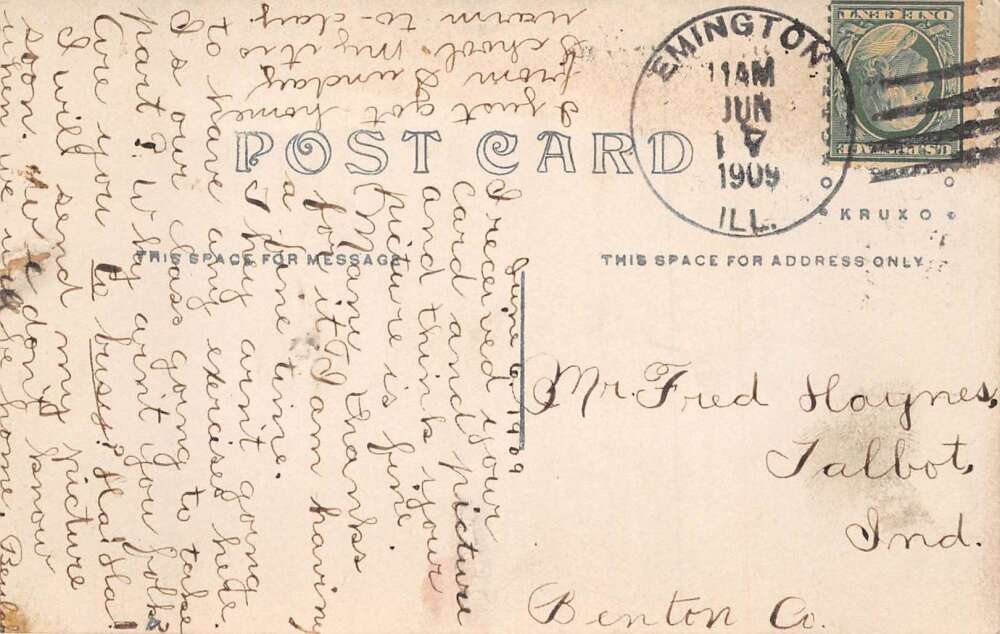 POST CARD
EMINGTON
11AM
JUN
7
1909
ILL.
U.S. POSTAGE
ONE CENT
KRUXO
THIS SPACE FOR MESSAGE
THIS SPACE FOR ADDRESS ONLY
June 6, 1909
I received your
card and picture
and think your
picture is fine
Many thanks
for it. I am having
a fine time.
They ain't going
to have any exercises here.
Is our class going to take
part? Why ain't you folks
Are you to busy? Ha! Ha!
I will send my picture
soon. but don't know
when we will be home. Beulah
I just got home
from Sunday
School. My it is
warm to-day
Mr. Fred Haynes,
Talbot,
Ind.
Benton Co.